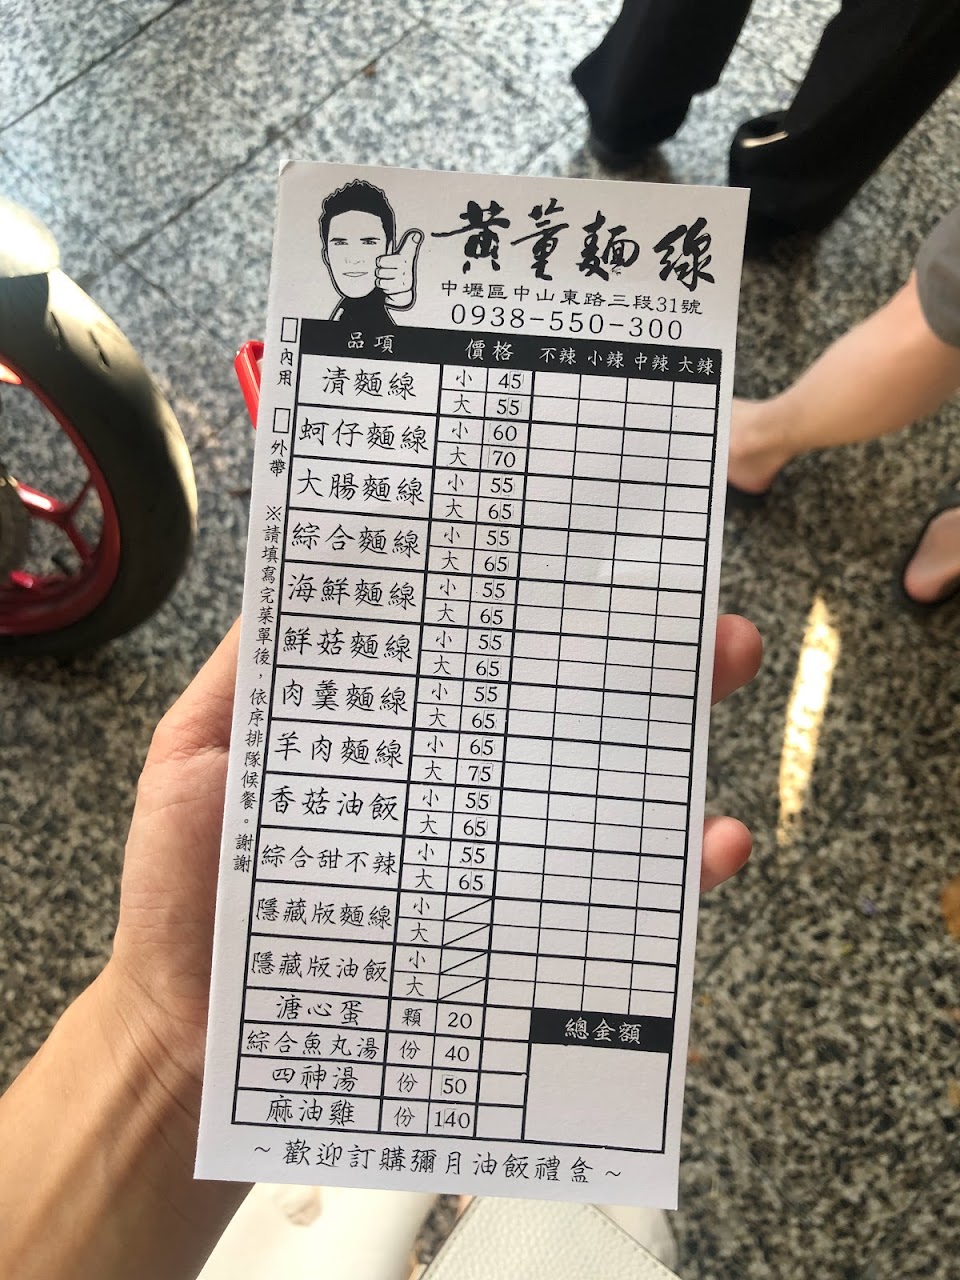 黃董麵線
中壢區中山東路三段31號
0938-550-300
□內用
□外帶
※請填寫完菜單後，依序排隊候餐。謝謝
品項 價格 不辣 小辣 中辣 大辣
清麵線 小 45
大 55
蚵仔麵線 小 60
大 70
大腸麵線 小 55
大 65
綜合麵線 小 55
大 65
海鮮麵線 小 55
大 65
鮮菇麵線 小 55
大 65
肉羹麵線 小 55
大 65
羊肉麵線 小 65
大 75
香菇油飯 小 55
大 65
綜合甜不辣 小 55
大 65
隱藏版麵線 小
大
隱藏版油飯 小
大
溏心蛋 顆 20
總金額
綜合魚丸湯 份 40
四神湯 份 50
麻油雞 份 140
~歡迎訂購彌月油飯禮盒~